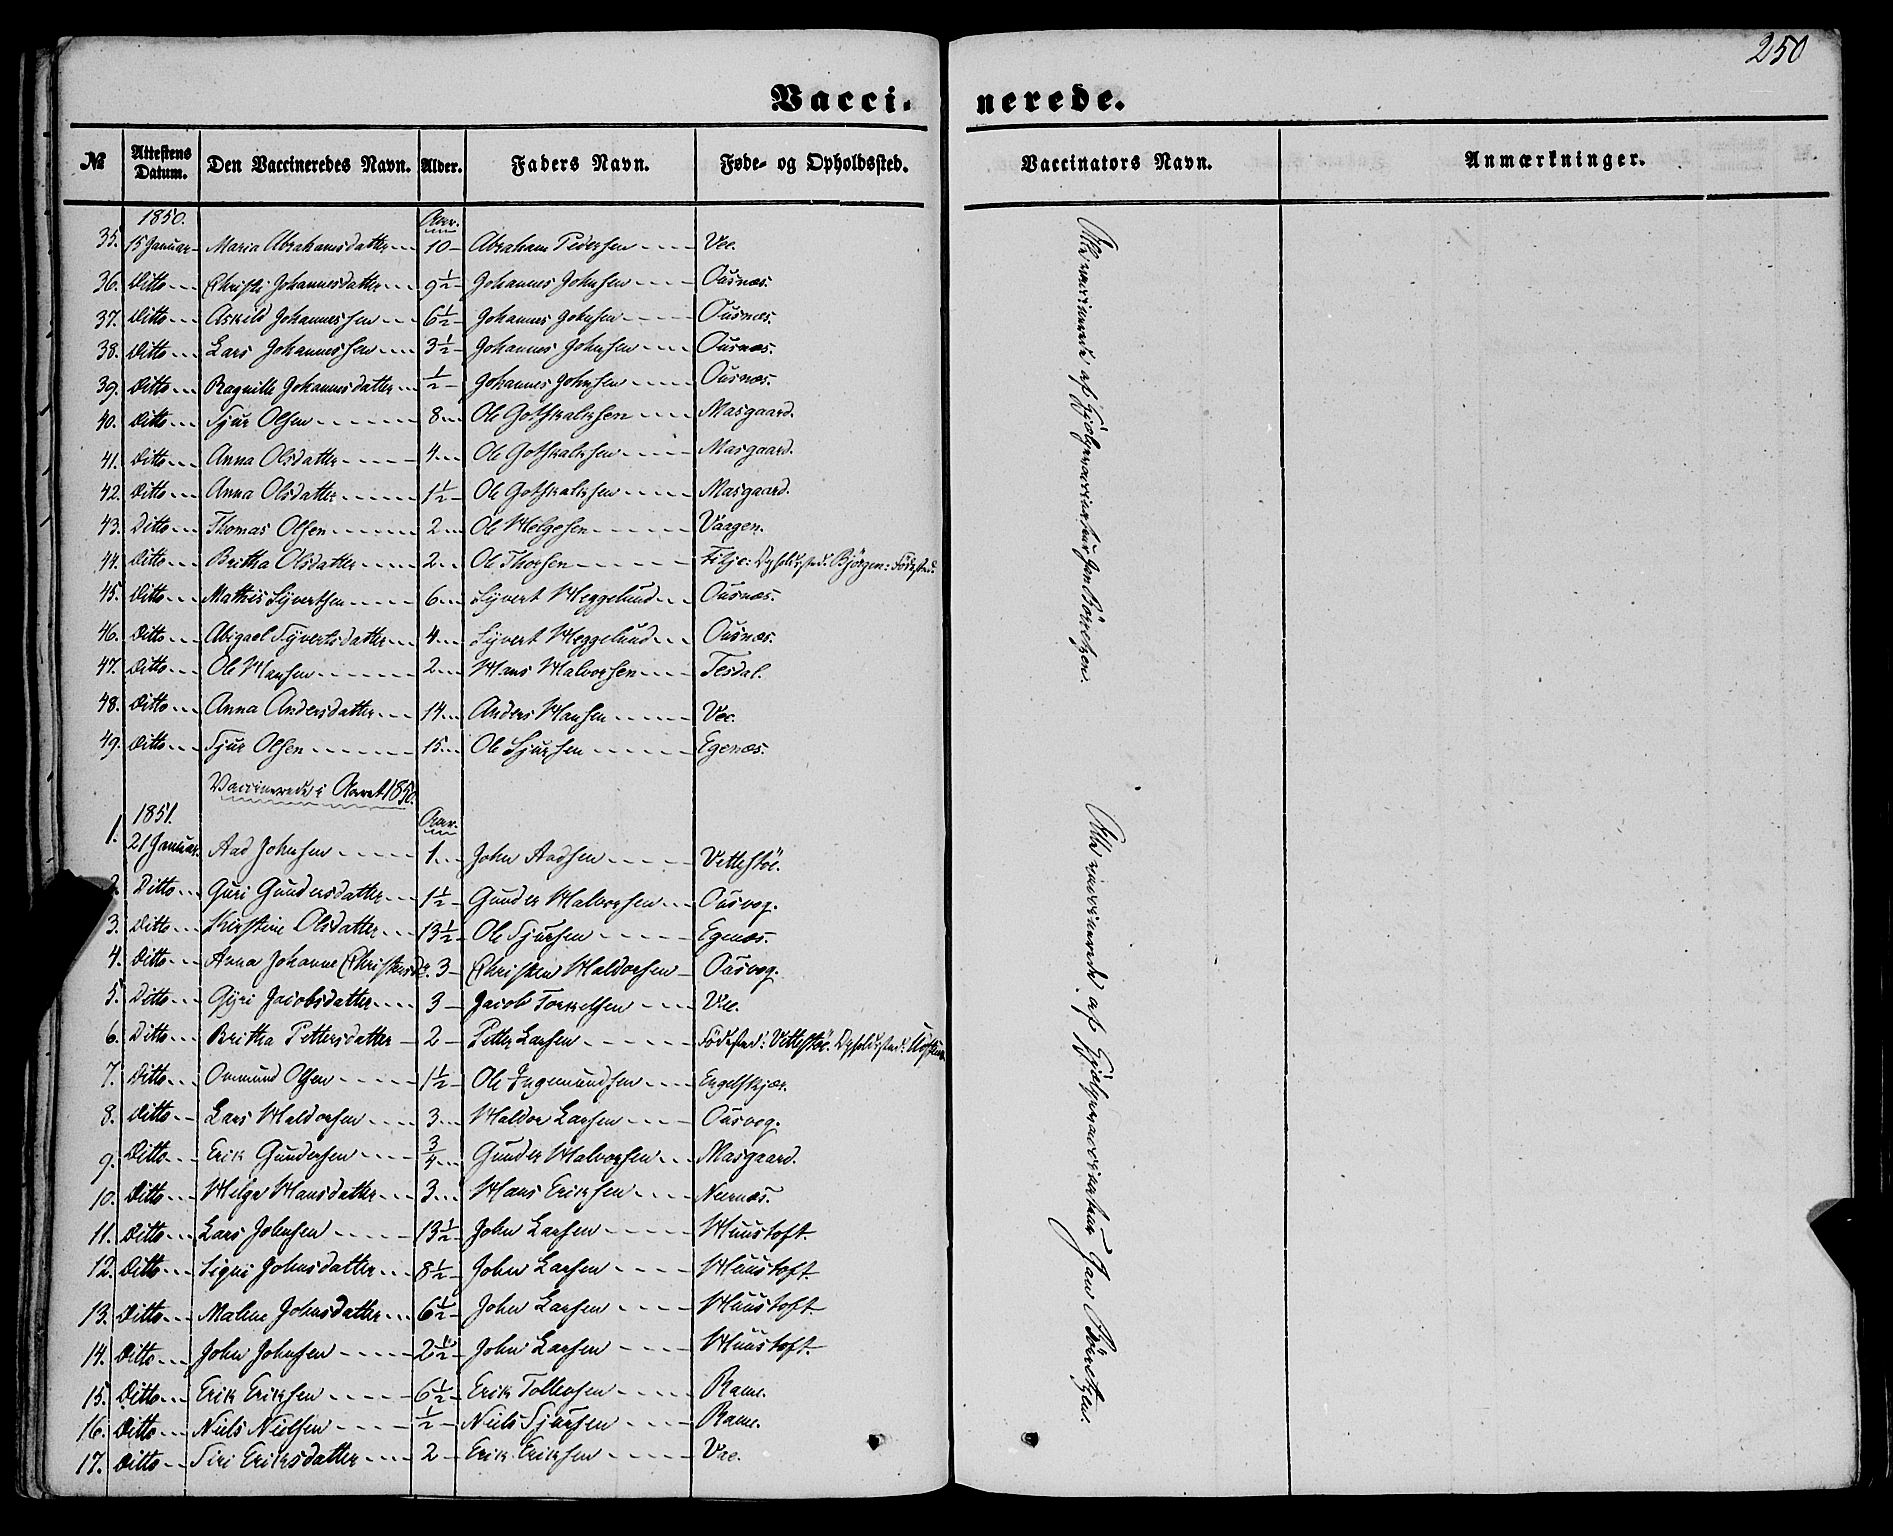 250
Vacci- nerede.
№ Attestens Datum. Den Vaccineredes Navn. Alder. Faders Navn. Føde- og Opholdssted. Vaccinators Navn. Anmærkninger.
1850. Aar.
35. 15 Januar Maria Abrahamsdatter 10 Abraham Pedersen Vee.
36. Ditto Christi Johannesdatter 9½ Johannes Johnsen Ousnæs.
37. Ditto Askild Johannessen 6½ Johannes Johnsen Ousnæs.
38. Ditto Lars Johannessen 3½ Johannes Johnsen Ousnæs.
39. Ditto Ragnille Johannesdatter ½ Johannes Johnsen Ousnæs.
40. Ditto Sjur Olsen 8 Ole Gothskalksen Masgaard.
41. Ditto Anna Olsdatter 4 Ole Gothskalksen Masgaard.
42. Ditto Anna Olsdatter 1½ Ole Gothskalksen Masgaard.
43. Ditto Thomas Olsen 2 Ole Helgesen Vaagen.
44. Ditto Britha Olsdatter 2 Ole Thorsen Fitje: Opholdssted: Bjørgen: Fødested:
45. Ditto Mathis Syvertsen 6 Syvert Heggelund Ousnæs.
46. Ditto Abigael Syvertsdatter 4 Syvert Heggelund Ousnæs.
47. Ditto Ole Hansen 2 Hans Halvorsen Tesdal.
48. Ditto Anna Andersdatter 14 Anders Hansen Vee.
49. Ditto Sjur Olsen 15 Ole Sjursen Egenæs.
Alle vaccinerede af Hjælpevaccinateur Jan Børretzen.
Vaccinerede i Aaret 1850.
1851. Aar.
1. 21 Januar Aad Johnsen 1 John Aadsen Vettestøe.
2. Ditto Guri Gundersdatter 1½ Gunder Halvorsen Ousvog.
3. Ditto Kirstine Olsdatter 13½ Ole Sjursen Egenæs.
4. Ditto Anna Johanne Christensdr. 3 Christen Haldorsen Ousvog.
5. Ditto Gyri Jacobsdatter 3 Jacob Torkelsen Vee.
6. Ditto Britha Pettersdatter 2 Petter Larsen Fødested: Vettestøe. Opholdssted:
7. Ditto Ommund Olsen 1½ Ole Ingemundsen Engelskjær.
8. Ditto Lars Haldorsen 3 Haldor Larsen Ousvog.
9. Ditto Erik Gundersen ¾ Gunder Halvorsen Masgaard.
10. Ditto Helga Hansdatter 3 Hans Eriksen Neernæs.
11. Ditto Lars Johnsen 13½ John Larsen Huustoft.
12. Ditto Signi Johnsdatter 8½ John Larsen Huustoft.
13. Ditto Malene Johnsdatter 6½ John Larsen Huustoft.
14. Ditto John Johnsen 2½ John Larsen Huustoft.
15. Ditto Erik Eriksen 6½ Erik Tollevsen Rame.
16. Ditto Niels Nielsen ½ Niels Sjursen Rame.
17. Ditto Siri Eriksdatter 2 Erik Eriksen Vee.
Alle vaccinerede af Hjælpevaccinateur Jan Børretzen.